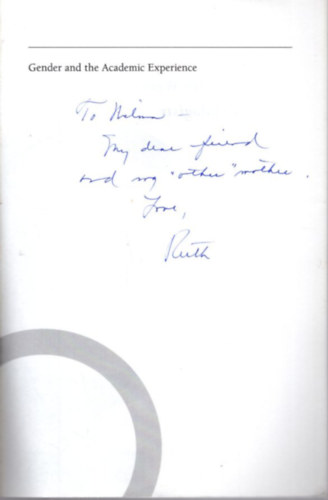 Gender and the Academic Experience
To Wilma —
My dear friend
and my "other" mother.
Love,
Ruth